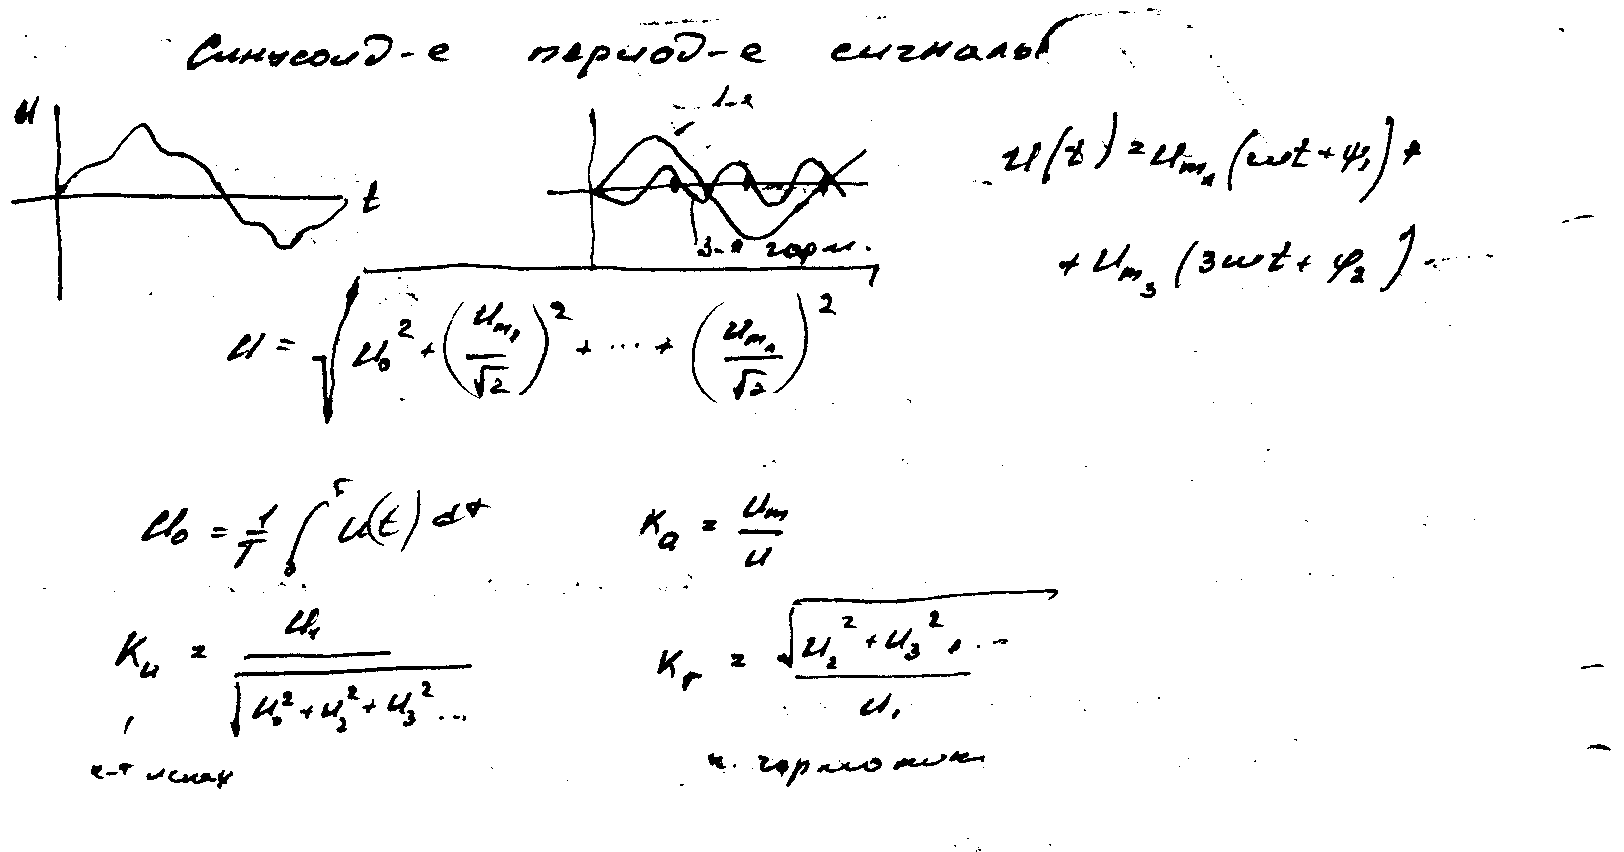 Синусоид-е период-е сигналы
U
t
1-я
3-я гарм.
U(t) = U_{m_1}(ωt + ψ_1) +
+ U_{m_3}(3ωt + φ_2) ...
U = √(U_0^2 + (U_{m_1}/√2)^2 + ... + (U_{m_n}/√2)^2)
U_0 = 1/T ∫_0^T U(t) dt
K_a = U_m/U
K_и = U_1/√(U_0^2 + U_2^2 + U_3^2 ...)
K_г = √(U_2^2 + U_3^2 + ...)/U_1
к-т искаж
к. гармоник